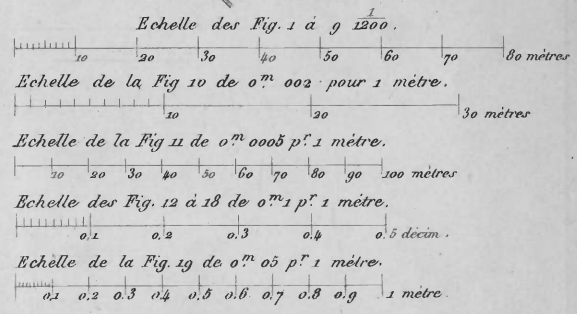 Echelle des Fig. 1 á 9 1/1200.
10 20 30 40 50 60 70 80 mètres
Echelle de la Fig 10 de 0m. 002 pour 1 mètre.
10 20 30 mètres
Echelle de la Fig 11 de 0m. 0005 pr. 1 mètre.
10 20 30 40 50 60 70 80 90 100 mètres
Echelle des Fig. 12 à 18 de 0m. 1 pr. 1 mètre.
0,1 0,2 0,3 0,4 0,5 décim.
Echelle de la Fig. 19 de 0m. 05 pr. 1 mètre.
0,1 0,2 0,3 0,4 0,5 0,6 0,7 0,8 0,9 1 mètre.